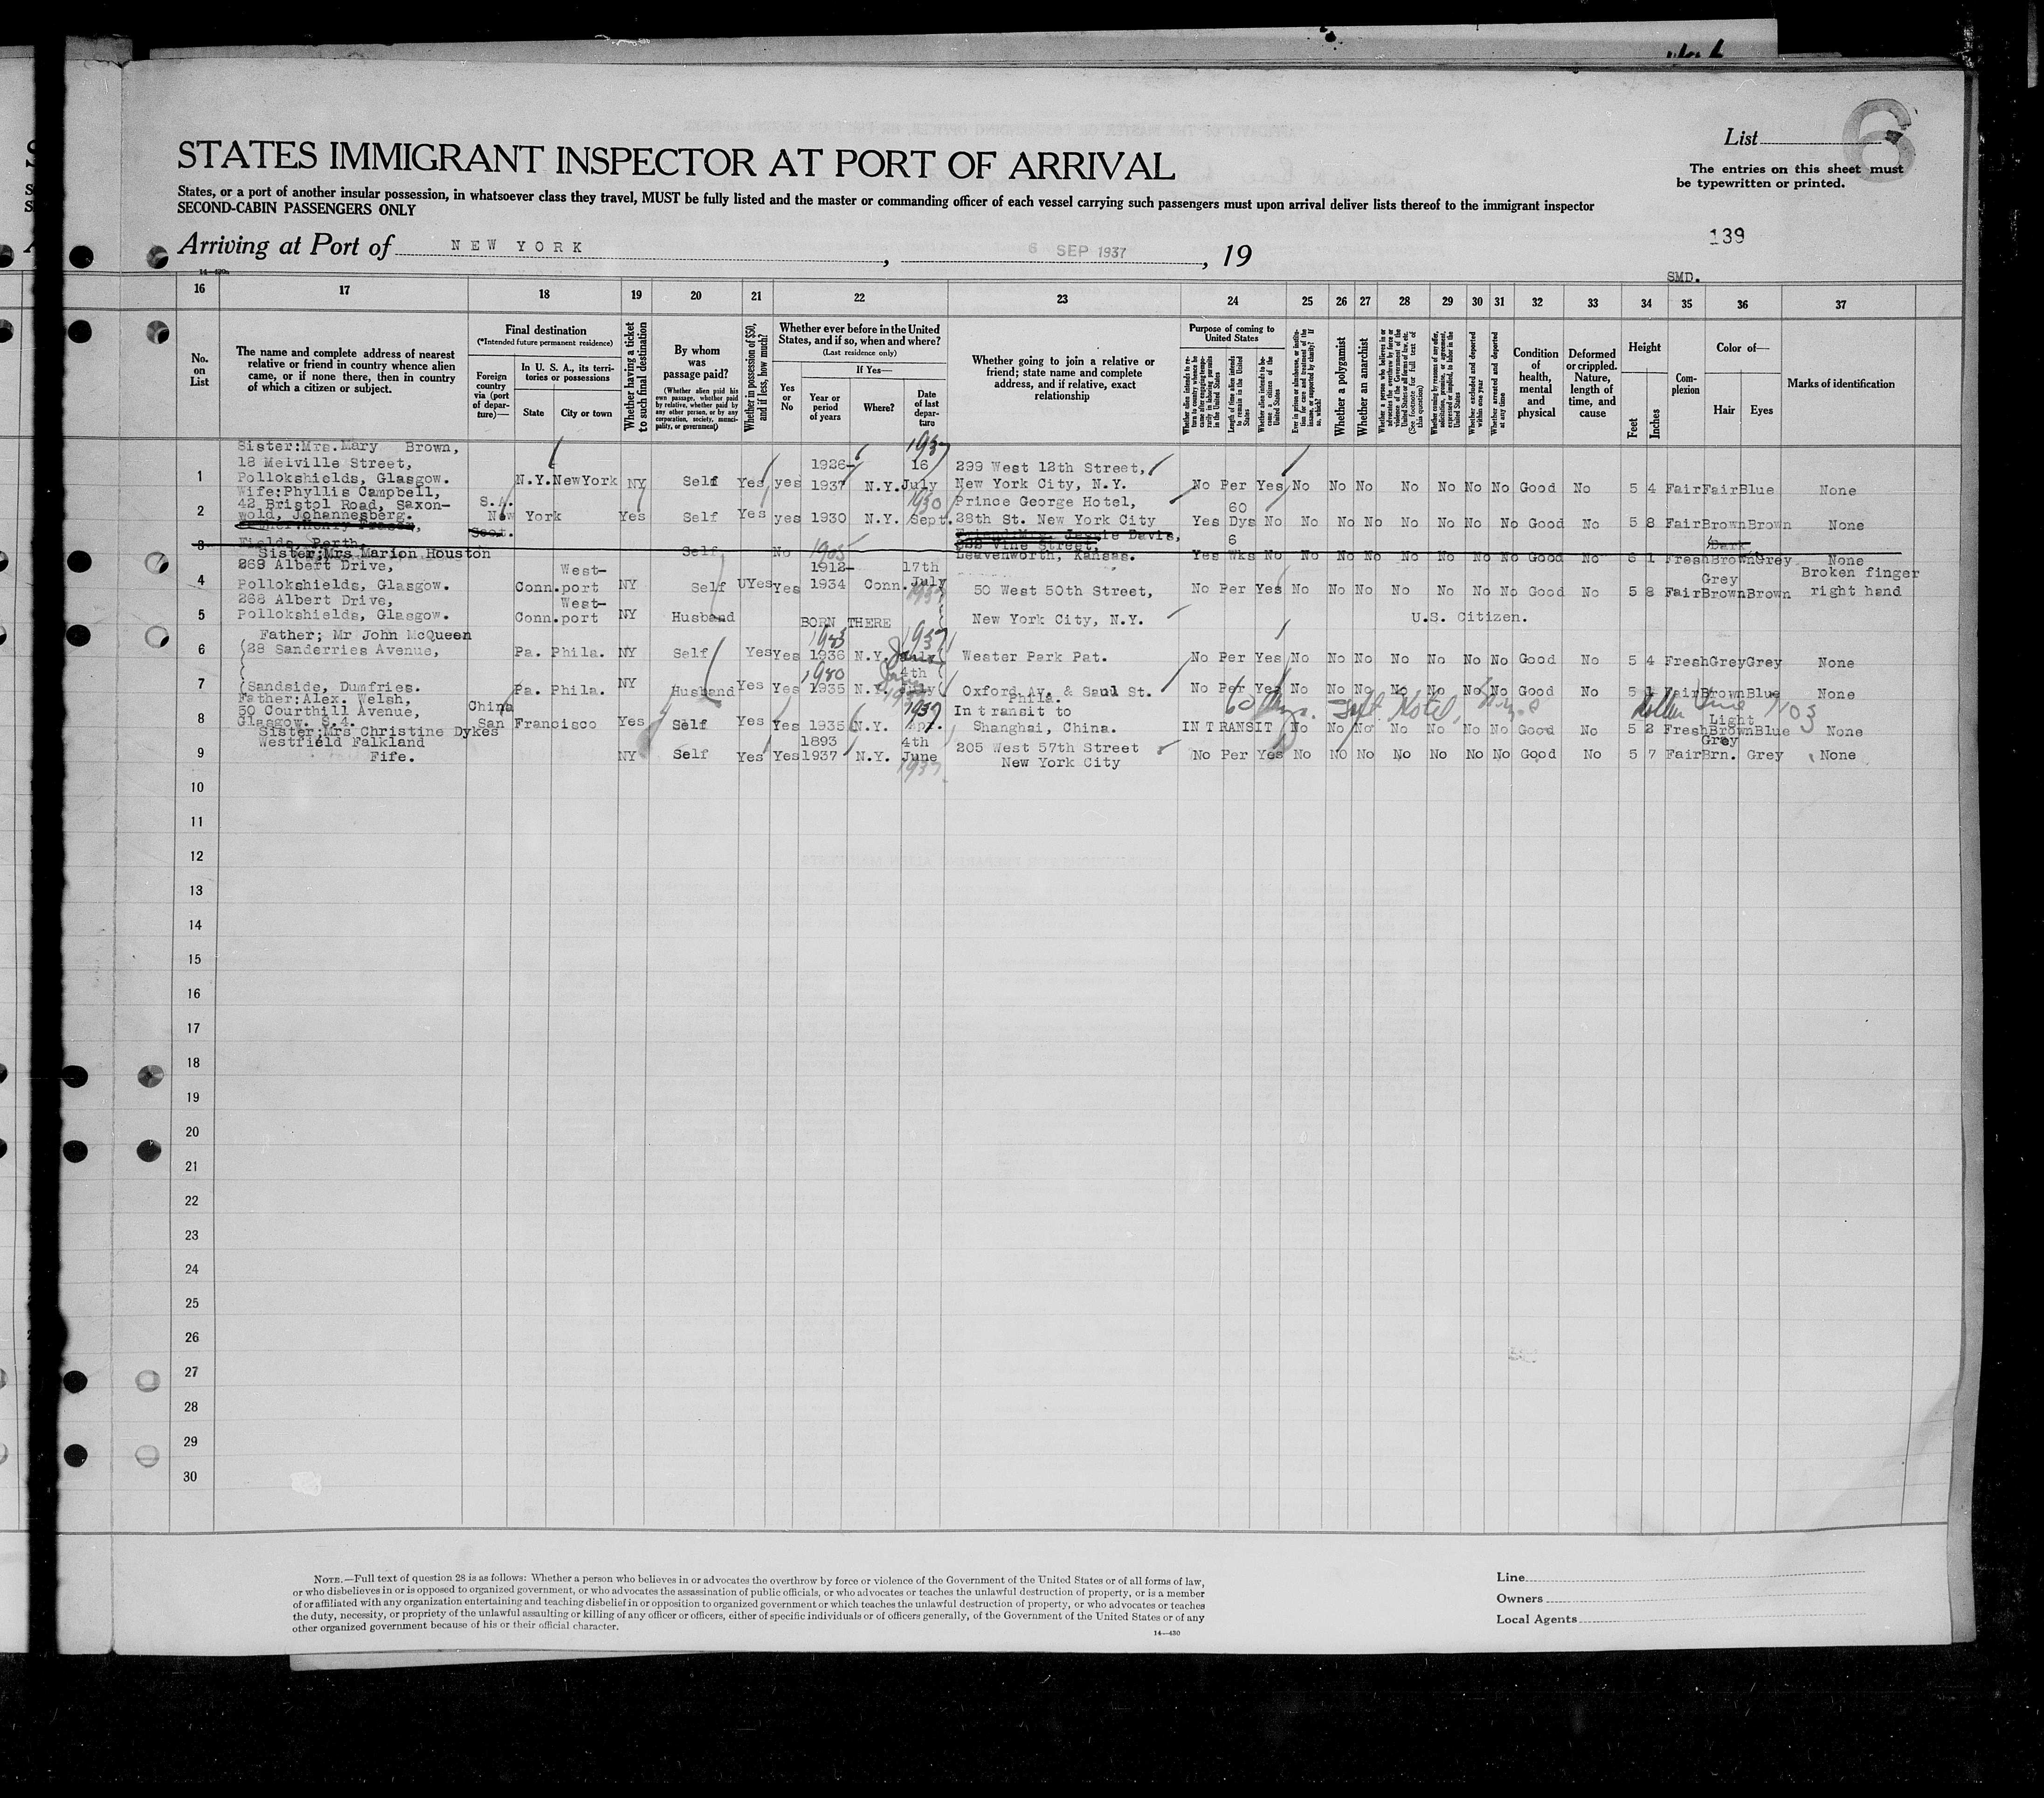 List
6
The entries on this sheet must
be typewritten or printed.
STATES IMMIGRANT INSPECTOR AT PORT OF ARRIVAL
States, or a port of another insular possession, in whatsoever class they travel, MUST be fully listed and the master or commanding officer of each vessel carrying such passengers must upon arrival deliver lists thereof to the immigrant inspector
SECOND-CABIN PASSENGERS ONLY
Arriving at Port of NEW YORK, 6 SEP 1937, 19
139
SMD.
16 17 18 19 20 21 22 23 24 25 26 27 28 29 30 31 32 33 34 35 36 37
No. on List
The name and complete address of nearest
relative or friend in country whence alien
came, or if none there, then in country
of which a citizen or subject.
Final destination
(*Intended future permanent residence)
Foreign country via (port of departure)—
In U. S. A., its territories or possessions
State
City or town
Whether having a ticket to such final destination
By whom was passage paid?
(Whether alien paid his own passage, whether paid by relative, whether paid by any other person, or by any corporation, society, municipality, or government)
Whether in possession of $50, and if less, how much?
Whether ever before in the United States, and if so, when and where?
(Last residence only)
Yes or No
If Yes—
Year or period of years
Where?
Date of last departure
Whether going to join a relative or
friend; state name and complete
address, and if relative, exact
relationship
Purpose of coming to United States
Length of time alien intends to remain in the United States
Whether alien intends to become a citizen of the United States
Whether a polygamist
Whether an anarchist
Whether excluded and deported within one year
Whether arrested and deported at any time
Condition of health, mental and physical
Deformed or crippled. Nature, length of time, and cause
Height
Feet
Inches
Complexion
Color of—
Hair
Eyes
Marks of identification
Sister:Mrs.Mary Brown,
18 Melville Street,
1 Pollokshields, Glasgow. N.Y. NewYork NY Self Yes yes 1926- 1937 N.Y. 16 July 1937 299 West 12th Street, New York City, N.Y. No Per Yes No No No No No No No Good No 5 4 Fair Fair Blue None
Wife:Phyllis Campbell,
42 Bristol Road, Saxon-
2 wold, Johannesberg. S.A. New York Yes Self Yes yes 1930 N.Y. Sept. 1930 Prince George Hotel, 28th St. New York City Yes 60 Dys No No No No No No No No Good No 5 8 Fair Brown Brown None
3 Fields, Perth. Scot. Self No Friend:Mrs. Jessie Davis, Vine Street, Leavenworth, Kansas. Yes 6 Wks No No No No No No No No Good No 6 1 Fresh Dark Brown Grey None
Sister;Mrs Marion Houston
268 Albert Drive,
4 Pollokshields, Glasgow. Conn. West-port NY Self Yes Yes 1905 1912- 1934 Conn. 17th July 1937 50 West 50th Street, No Per Yes No No No No No No No Good No 5 8 Fair Grey Brown Brown Broken finger right hand
268 Albert Drive,
5 Pollokshields, Glasgow. Conn. West-port NY Husband BORN THERE New York City, N.Y. U.S. Citizen.
Father; Mr John McQueen
6 28 Sanderries Avenue, Pa. Phila. NY Self Yes Yes 1936 N.Y. 1937 Wester Park Pat. No Per Yes No No No No No No No Good No 5 4 Fresh Grey Grey None
7 Sandside, Dumfries. Pa. Phila. NY Husband Yes Yes 1935 N.Y. 4th July Oxford Av. & Saul St. Phila. No Per Yes No No No No No No No Good No 5 1 Fair Brown Blue None
Father:Alex. Welsh,
50 Courthill Avenue,
8 Glasgow. S.4. China San Francisco Yes Self Yes Yes 1935 N.Y. Apr. 1937 In transit to Shanghai, China. IN TRANSIT No No No No No No No Good No 5 2 Fresh Light Brown Blue None
60 Dys. Taft Hotel, N.Y.C
Sister;Mrs Christine Dykes
Westfield Falkland
9 Fife. NY Self Yes Yes 1893 1937 N.Y. 4th June 1937 205 West 57th Street New York City No Per Yes No No No No No No No Good No 5 7 Fair Grey Brn. Grey None
10
11
12
13
14
15
16
17
18
19
20
21
22
23
24
25
26
27
28
29
30
NOTE.—Full text of question 28 is as follows: Whether a person who believes in or advocates the overthrow by force or violence of the Government of the United States or of all forms of law,
or who disbelieves in or is opposed to organized government, or who advocates the assassination of public officials, or who advocates or teaches the unlawful destruction of property, or is a member
of or affiliated with any organization entertaining and teaching disbelief in or opposition to organized government or which teaches the unlawful destruction of property, or who advocates or teaches
the duty, necessity, or propriety of the unlawful assaulting or killing of any officer or officers, either of specific individuals or of officers generally, of the Government of the United States or of any
other organized government because of his or their official character.
14—430
Line
Owners
Local Agents